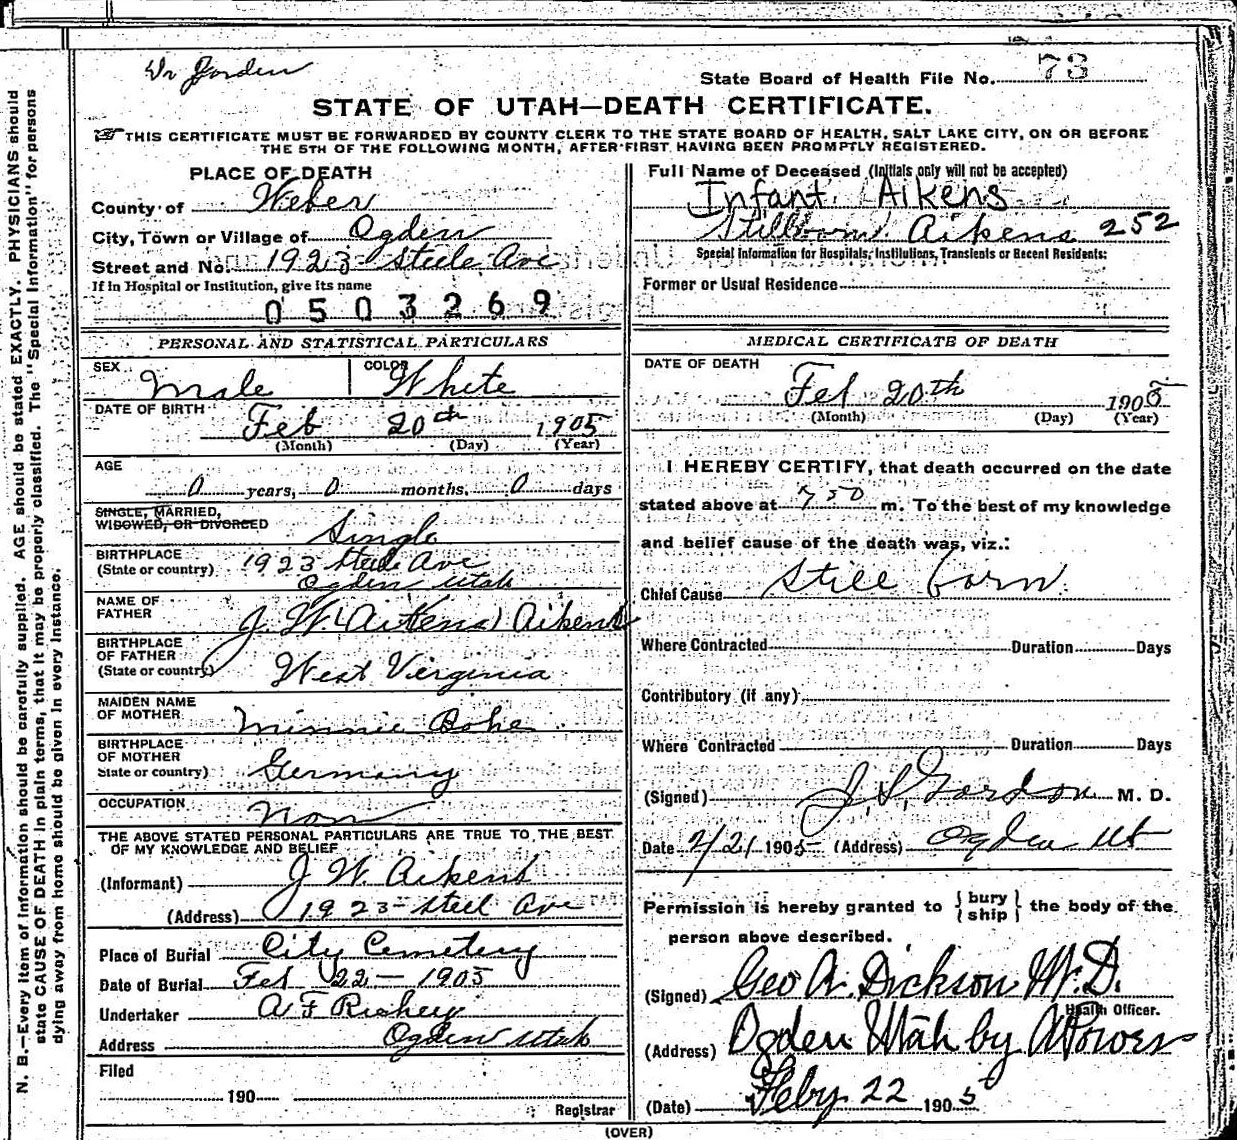 N. B.—Every item of information should be carefully supplied. AGE should be stated EXACTLY. PHYSICIANS should
state CAUSE OF DEATH in plain terms, that it may be properly classified. The "Special Information" for persons
dying away from home should be given in every instance.
State Board of Health File No. 73
STATE OF UTAH—DEATH CERTIFICATE.
THIS CERTIFICATE MUST BE FORWARDED BY COUNTY CLERK TO THE STATE BOARD OF HEALTH, SALT LAKE CITY, ON OR BEFORE
THE 5TH OF THE FOLLOWING MONTH, AFTER FIRST HAVING BEEN PROMPTLY REGISTERED.
PLACE OF DEATH
County of Weber
City, Town or Village of Ogden
Street and No. 1923 Steele Ave
If in Hospital or Institution, give its name
0503269
PERSONAL AND STATISTICAL PARTICULARS
SEX Male COLOR White
DATE OF BIRTH Feb 20th 1905
(Month) (Day) (Year)
AGE
0 years, 0 months, 0 days
SINGLE, MARRIED,
WIDOWED, OR DIVORCED Single
BIRTHPLACE 1923 Steele Ave
(State or country) Ogden Utah
NAME OF
FATHER J. W. (Aitkens) Aikens
BIRTHPLACE
OF FATHER
(State or country) West Virginia
MAIDEN NAME
OF MOTHER Minnie Bohe
BIRTHPLACE
OF MOTHER
State or country) Germany
OCCUPATION Non
THE ABOVE STATED PERSONAL PARTICULARS ARE TRUE TO THE BEST
OF MY KNOWLEDGE AND BELIEF
(Informant) J W. Aikens
(Address) 1923 Steel Ave
Place of Burial City Cemetery
Date of Burial Feb 22 — 1905
Undertaker A F Richey
Address Ogden Utah
Filed
190
Registrar
Full Name of Deceased (Initials only will not be accepted)
Infant Aikens
Stillborn Aikens 252
Special Information for Hospitals, Institutions, Transients or Recent Residents:
Former or Usual Residence
MEDICAL CERTIFICATE OF DEATH
DATE OF DEATH
Feb 20th 1905
(Month) (Day) (Year)
I HEREBY CERTIFY, that death occurred on the date
stated above at 7 50 m. To the best of my knowledge
and belief cause of the death was, viz.:
Chief Cause Still born
Where Contracted Duration Days
Contributory (if any)
Where Contracted Duration Days
(Signed) J. S. Gordon M. D.
Date 2/21 1905 (Address) Ogden Ut
Permission is hereby granted to { bury
ship } the body of the
person above described.
(Signed) Geo A. Dickson M.D.
Health Officer.
(Address) Ogden Utah by A Power
(Date) Feby 22 1905
(OVER)